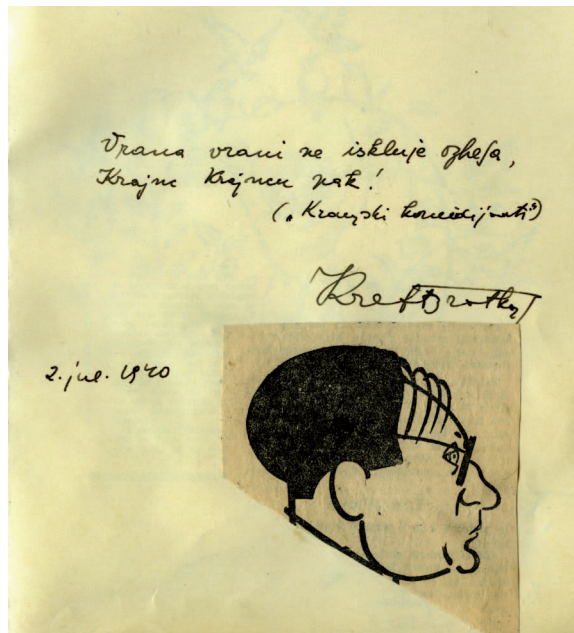 Vrana vrani ne iskluje ozhesa,
Krajnc Krajncu pak!
("Kranjski komedijanti")
Kreft Bratko
2. jul. 1940